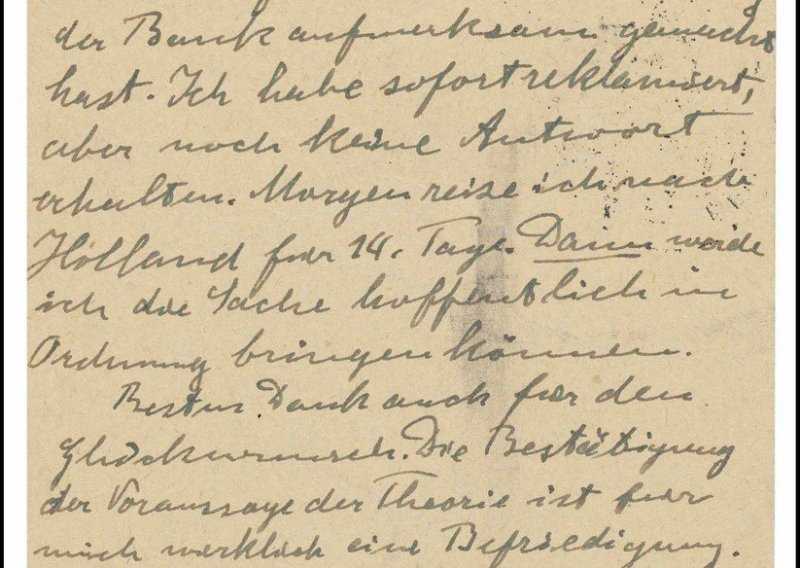 der Bank aufmerksam gemacht
hast. Ich habe sofort reklamiert,
aber noch keine Antwort
erhalten. Morgen reise ich nach
Holland fuer 14. Tage. Dann werde
ich die Sache hoffentlich in
Ordnung bringen können.
Besten Dank auch fuer den
Glückwunsch. Die Bestätigung
der Voraussage der Theorie ist fuer
mich wirklich eine Befriedigung.